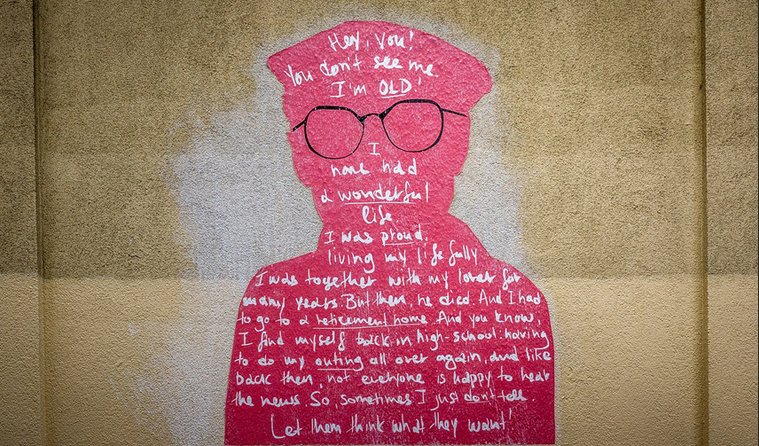 Hey, you!
You don't see me.
I'm OLD!
I
have had
a wonderful
life
I was proud.
living my life fully
I was together with my lover for
many years. But then, he died. And I had
to go to a retirement home. And you know
I find myself back in high-school: having
to do my outing all over again, and like
back then, not everyone is happy to hear
the news. So, sometimes I just don't tell.
Let them think what they want!